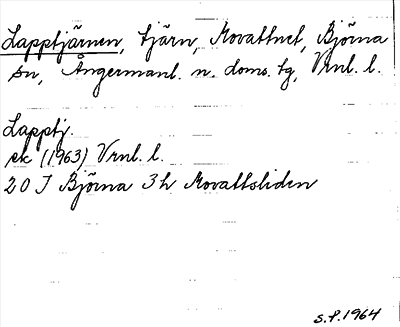 Lapptjärnen, tjärn, Movattnet, Björna
sn, Ångermanl. n. doms. tg, Vrnl. l.
Lapptj.
ek (1963) Vrnl. l.
20 J Björna 3h Movattsliden
S.P. 1964